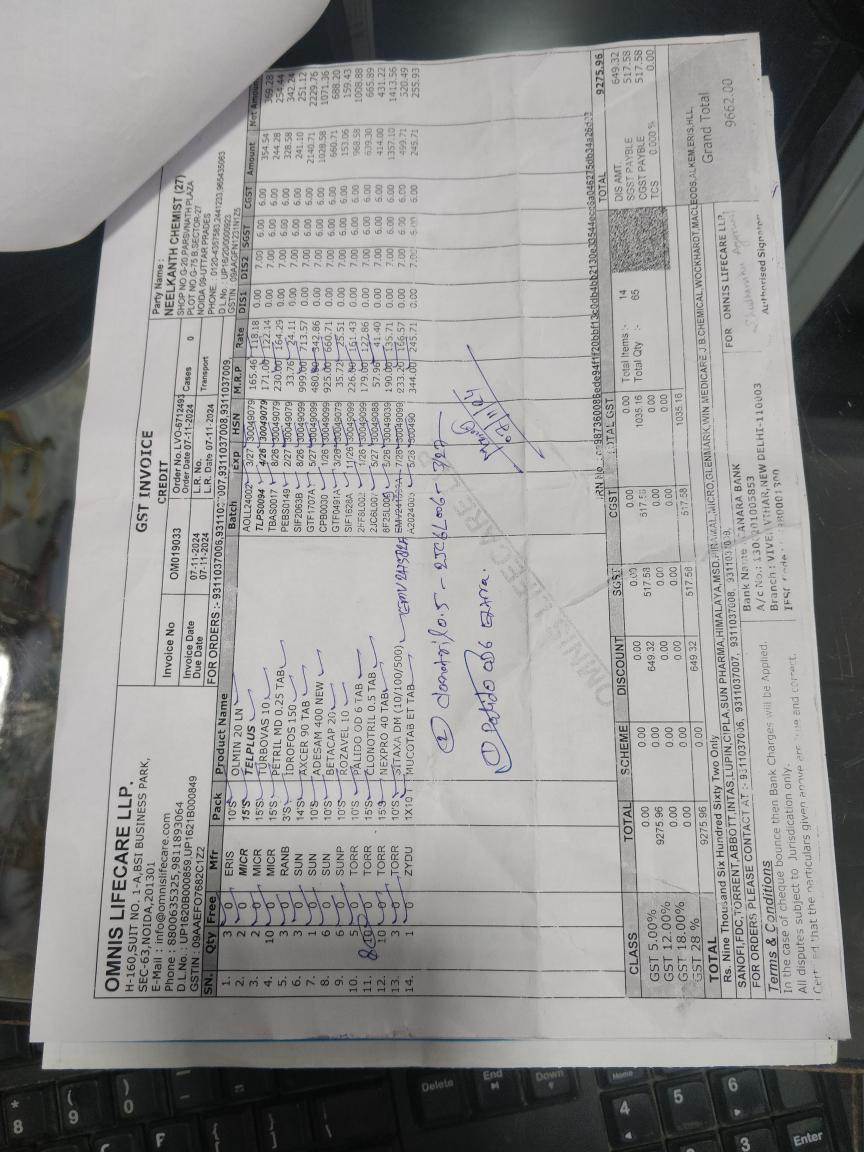 GST INVOICE
OMNIS LIFECARE LLP.
H-160,SUIT NO. 1-A,BSI BUSINESS PARK,
SEC-63,NOIDA,201301
E-Mail : info@omnislifecare.com
Phone : 8800635325,9811893064
D.L.No. : UP1620B000859,UP1621B000849
GSTIN : 09AAEFO7682C1Z2
CREDIT
Invoice No OM019033 Order No. LVO-6712493
Order Date 07-11-2024 Cases 0
Invoice Date 07-11-2024 L.R. No.
Due Date 07-11-2024 L.R. Date 07-11-2024 Transport
FOR ORDERS :- 9311037006,9311037007,9311037008,9311037009
Party Name :
NEELKANTH CHEMIST (27)
SHOP NO.G-20,PARSVNATH PLAZA
PLOT NO.G-75 B,SECTOR-27
NOIDA 09-UTTAR PRADES
PHONE : 0120-4357583,2441233,965435063
SN. Qty Free Mfr Pack Product Name Batch Exp HSN M.R.P Rate DIS1 DIS2 SGST CGST Amount Net Amount
1. 3 0 ERIS 10'S OLMIN 20 LN AOLL24002 3/27 30049079 165.46 118.18 0.00 7.00 6.00 6.00 354.54
2. 2 0 MICR 15'S TELPLUS TLPS0094 4/26 30049079 171.00 122.14 0.00 7.00 6.00 6.00 244.28 254.44
3. 2 0 MICR 15'S TURBOVAS 10 TBAS0017 8/26 30049079 230.00 164.29 0.00 7.00 6.00 6.00 328.58 342.24
4. 10 0 MICR 15'S PETRIL MD 0.25 TAB PEBS0149 2/27 30049079 33.76 24.11 0.00 7.00 6.00 6.00 241.10 251.12
5. 3 0 RANB 3'S IDROFOS 150 SIF2063B 8/26 30049099 999.00 713.57 0.00 7.00 6.00 6.00 2140.71 2229.76
6. 3 0 SUN 14'S AXCER 90 TAB GTF1707A 5/27 30049099 480.00 342.86 0.00 7.00 6.00 6.00 1028.58 1071.36
7. 1 0 SUN 10'S ADESAM 400 NEW CPB0030 1/26 30049099 925.00 660.71 0.00 7.00 6.00 6.00 660.71 688.20
8. 6 0 SUN 10'S BETACAP 20 GTF0491A 3/29 30049099 35.72 25.51 0.00 7.00 6.00 6.00 153.06 159.43
9. 6 0 SUNP 10'S ROZAVEL 10 SIF1628A 11/26 30049099 226.00 161.43 0.00 7.00 6.00 6.00 968.58 1008.88
10. 5 0 TORR 10'S PALIDO OD 6 TAB 1/26 30049099 179.00 0.00 7.00 6.00 6.00 639.30 665.89
11. 0 TORR 15'S CLONOTRIL 0.5 TAB 2JC6L007 5/27 30049088 57.96 41.40 0.00 7.00 6.00 6.00 414.00 431.22
12. 10 0 TORR 15'S NEXPRO 40 TAB 5/26 30049039 190.00 135.71 0.00 7.00 6.00 6.00 1357.10 1413.56
13. 3 0 TORR 10'S SITAXA DM (10/100/500) 7/26 30049099 233.20 166.57 0.00 7.00 6.00 6.00 499.71 520.49
14. 1 0 ZYDU 1X10T MUCOTAB ET TAB 5/26 300490 344.00 245.71 0.00 7.00 6.00 6.00 245.71 255.93
OMNIS LIFECARE LLP
CLASS TOTAL SCHEME DISCOUNT SGST CGST TOTAL GST
GST 5.00% 0.00 0.00 0.00 0.00 0.00 0.00
GST 12.00% 9275.96 0.00 649.32 517.58 517.58 1035.16
GST 18.00% 0.00 0.00 0.00 0.00 0.00 0.00
GST 28 % 0.00 0.00 0.00 0.00 0.00 0.00
TOTAL 9275.96 0.00 649.32 517.58 517.58 1035.16
Total Items :- 14
Total Qty :- 65
TOTAL 9275.96
DIS AMT. 649.32
SGST PAYBLE 517.58
CGST PAYBLE 517.58
TCS 0.000 % 0.00
Grand Total 9662.00
Rs. Nine Thousand Six Hundred Sixty Two Only
SANOFI,FDC,TORRENT,ABBOTT,INTAS,LUPIN,CIPLA,SUN PHARMA,HIMALAYA,MSD,PIRAMAL,MICRO,GLENMARK,WIN MEDICARE,J.B.CHEMICAL,WOCKHARDT,MACLEODS,ALKEM,ERIS,HLL,
FOR ORDERS PLEASE CONTACT AT :- 9311037006, 9311037007, 9311037008, 9311037009
Terms & Conditions
In the case of cheque bounce then Bank Charges will be Applied.
All disputes subject to Jurisdication only.
that the particulars given above are true and correct.
Bank Name : CANARA BANK
Branch : VIVEK VIHAR,NEW DELHI-110003
FOR OMNIS LIFECARE LLP,
Authorised Signator